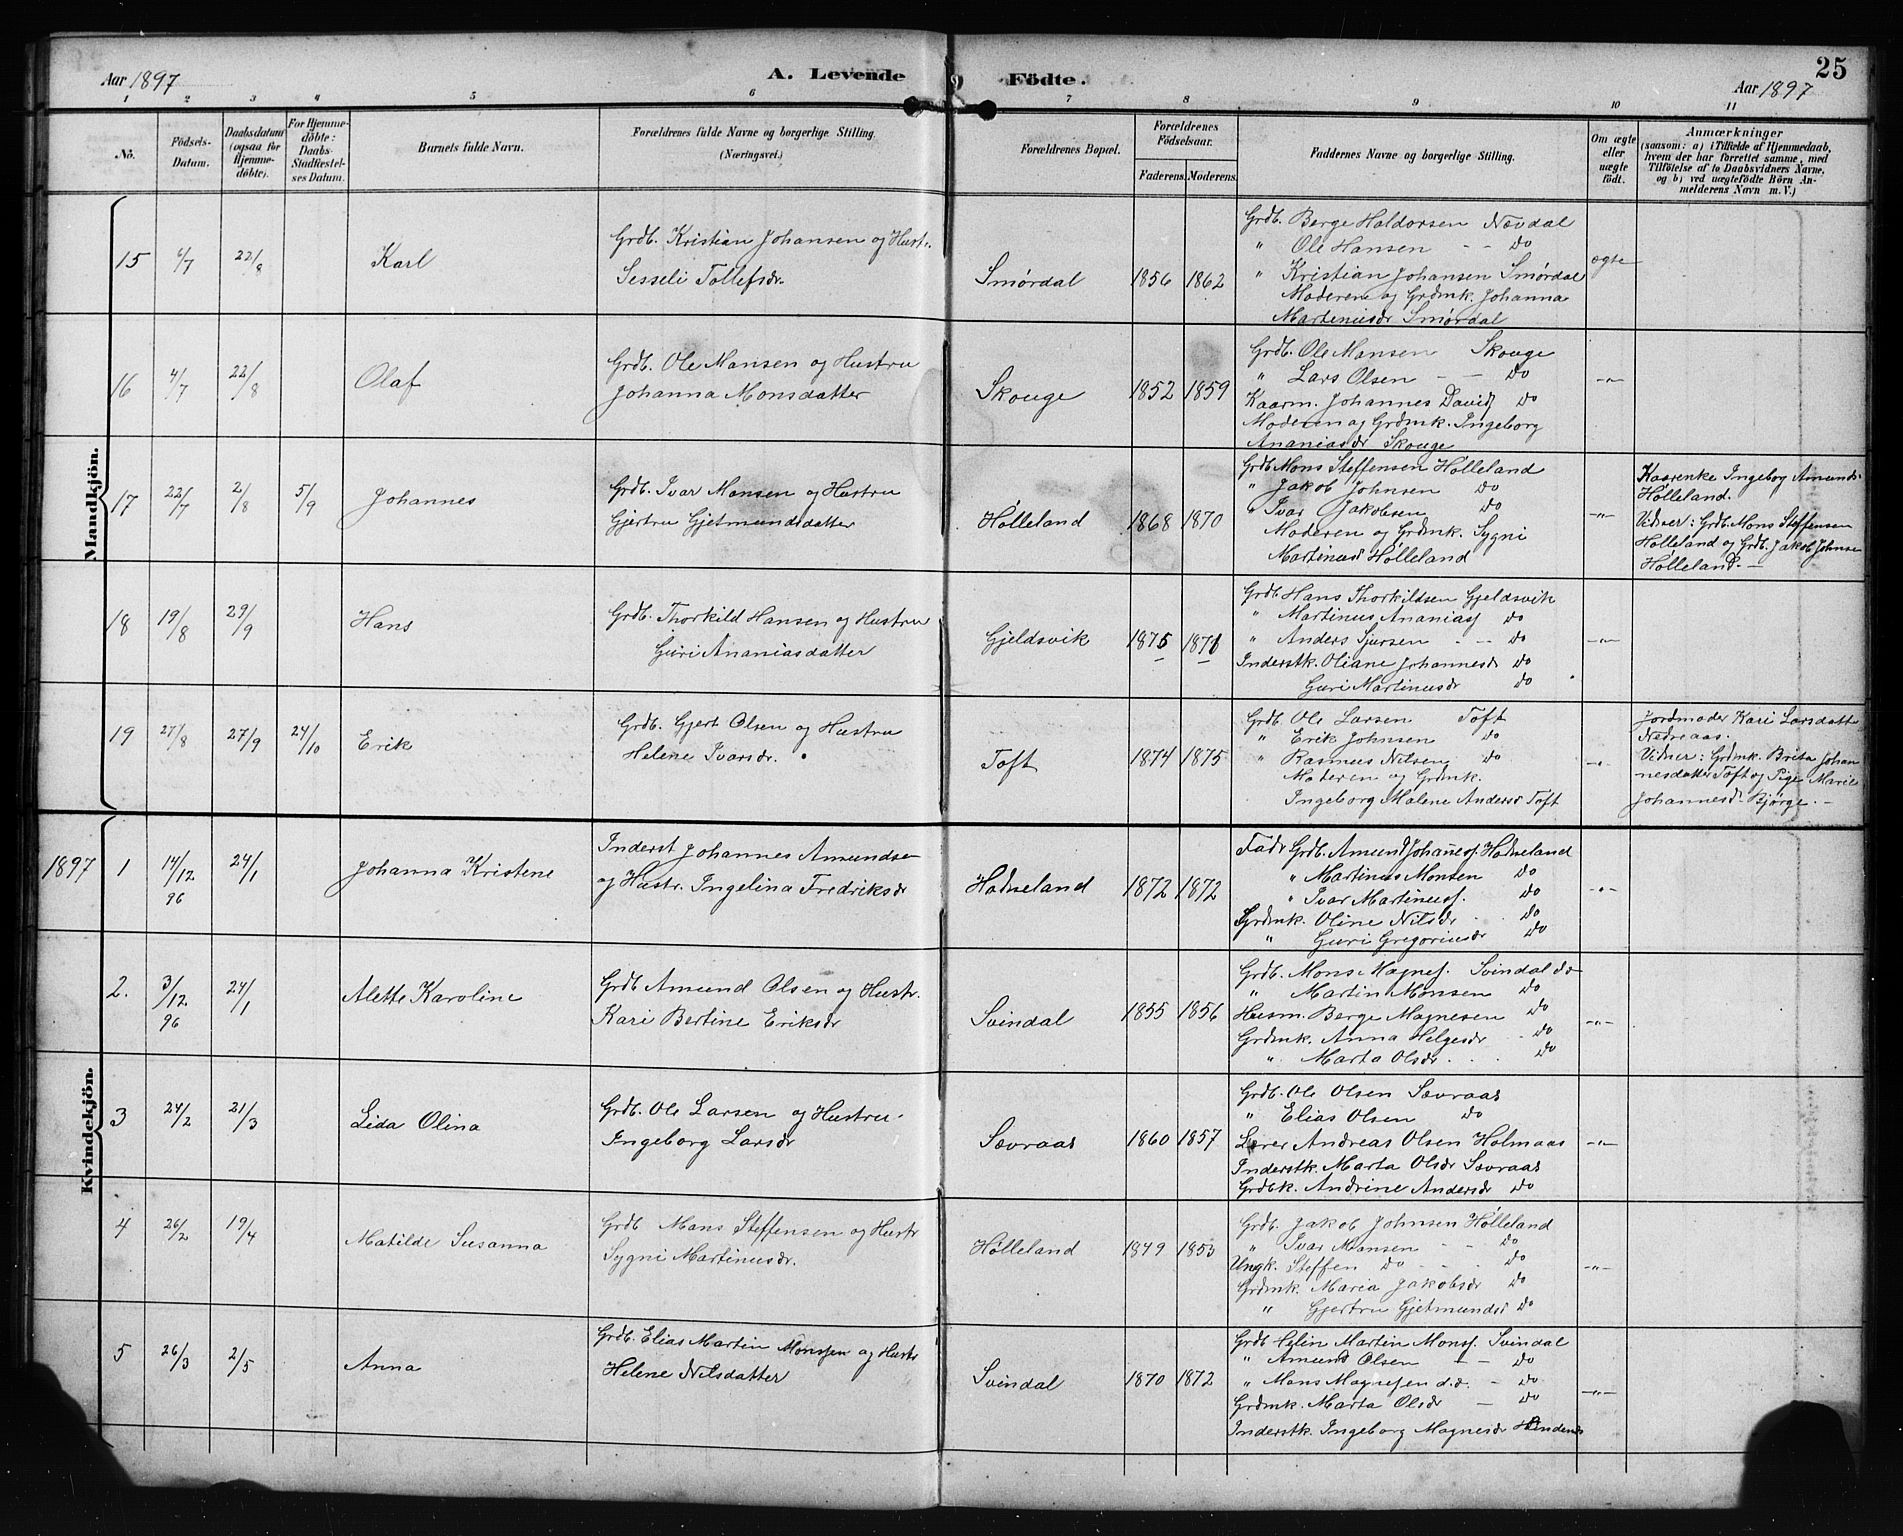 Aar 1897
A. Levende Födte.
25
Aar 1897
1 2 3 4 5 6 7 8 9 10 11
No.
Födsels-Datum.
Daabsdatum (ogsaa for Hjemme-döbte).
For Hjemme-döbte: Daabs-Stadfæstel-ses Datum.
Barnets fulde Navn.
Forældrenes fulde Navne og borgerlige Stilling.
(Næringsvei.)
Forældrenes Bopæl.
Forældrenes Födselsaar.
Faderens. Moderens.
Faddernes Navne og borgerlige Stilling.
Om ægte eller uægte födt.
Anmærkninger
(saasom: a) i Tilfælde af Hjemmedaab,
hvem der har forrettet samme, med
Tilföielse af to Daabsvidners Navne,
og b) ved uægtefödte Börn An-
melderens Navn m. V.)
Mandkjön.
15 4/7 22/8 Karl
Grdb. Kristian Johansen og Hustr.
Sesseli Tollefsdr.
Smørdal 1856 1862
Grdb. Berge Haldorsen Nævdal
" Ole Hansen - - Do
" Kristian Johansen Smørdal
Moderen og Grdmk. Johanna
Martinusdr Smørdal
ægte
16 4/7 22/8 Olaf
Grdb. Ole Monsen og Hustru
Johanna Monsdatter
Skouge 1852 1859
Grdb. Ole Monsen Skouge
" Lars Olsen - - Do
Kaarm. Johannes Davids Do
Moderen og Grdmk. Ingeborg
Ananiasdr Skouge
-"-
17 22/7 2/8 5/9 Johannes
Grdb. Ivar Monsen og Hustru
Gjertru Gjetmundsdatter
Hølleland 1868 1870
Grdb Mons Steffensen Hølleland
" Jakob Johnsen Do
" Ivar Jakobsen Do
Moderen og Grdmk. Sygni
Martinusd Hølleland
-"-
Kaarenke Ingebog Amunds-
Hølleland.
Vidner: Grdb. Mons Steffensen
Hølleland og Grdb. Jakob Johnse
Hølleland. -
18 19/8 29/9 Hans
Grdb. Thorkild Hansen og Hustru
Guri Ananiasdatter
Gjeldsvik 1875 1871
Grdb Hans Thorkildsen Gjeldsvik
" Martinus Ananias Do
" Anders Sjursen - - Do
Inderstk. Oliane Johannesd Do
Guri Martinusdr Do
-"-
19 27/8 27/9 24/10 Erik
Grdb. Gjert Olsen og Hustru
Helene Ivarsdr.
Toft 1874 1875
Grdb. Ole Larsen Toft
" Erik Johnsen Do
" Rasmus Nilsen Do
Moderen og Grdmk.
Ingeborg Malene Andersd Toft
-"-
Jordmoder Kari Larsdatter
Nedreaas.
Vidner: Grdmk. Brita Johan
nesdatter Toft og Pige Marie
Johannesd. Bjørge. -
Kvindekjön.
1897 1 14/12 96 24/1 Johanna Kristene
Inderst Johannes Amundsen
og Hustr. Ingelina Fredriksdr
Hodneland 1872 1872
Fadr Grdb. Amund Johannes. Hodneland
" Martinus Monsen Do
" Ivar Martinus. Do
Grdmk. Oline Nilsdr Do
" Guri Gregoriusdr Do
-"-
2. 3/12 96 24/1 Alette Karoline
Grdb Amund Olsen og Hustr.
Kari Bertine Eriksdr
Svindal 1855 1856
Grdb. Mons Magnes. Svindal
" Martin Monsen Do
Husm. Berge Magnesen Do
Grdmk. Anna Helgesdr Do
" Marta Olsdr Do
-"-
3 24/2 21/3 Lida Olina
Grdb. Ole Larsen og Hustru
Ingeborg Larsdr
Sævraas 1860 1857
Grdb. Ole Olsen Sævraas
" Elias Olsen Do
Lærer Andreas Olsen Holmaas
Inderstk. Marta Olsdr Sævraas
Grdbk. Andrine Andersdr Do
-"-
4 26/2 19/4 Matilde Susanna
Grdb Mons Steffensen og Hustr
Sygni Martinusdr.
Hølleland 1849 1853
Grdb. Jakob Johnsen Hølleland
" Ivar Monsen - - Do
Ungk. Steffen Do - - Do
Grdmk. Maria Jakobsdr Do
" Gjertru Gjetmundsd Do
-"-
5 26/3 2/5 Anna
Grdb. Elias Martin Monssen og Hustr
Helene Nilsdatter
Svindal 1870 1872
Grdb Martin Mons. Svindal
" Amund Olsen - - Do
" Mons Magnesen - Do
Grdmk. Marta Olsdr - Do
Inderstk. Ingeborg Magnesdr
-"-